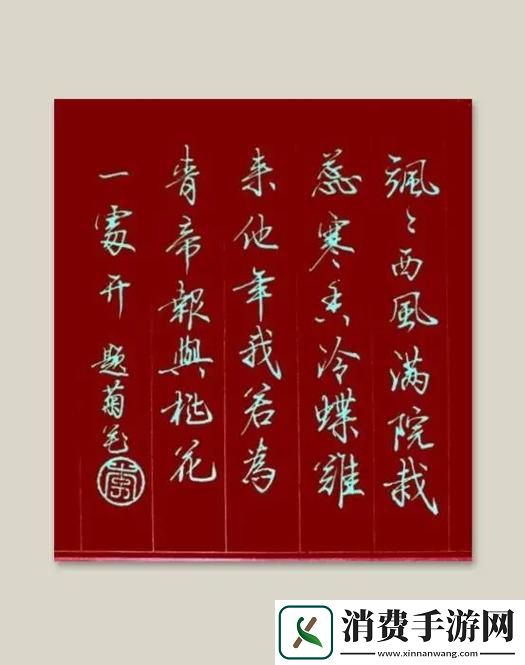 颯〻西風满院栽
蕊寒香冷蝶難
来他年我若為
青帝報與桃花
一處开 题菊花
消费手游网
www.xinnanwang.com